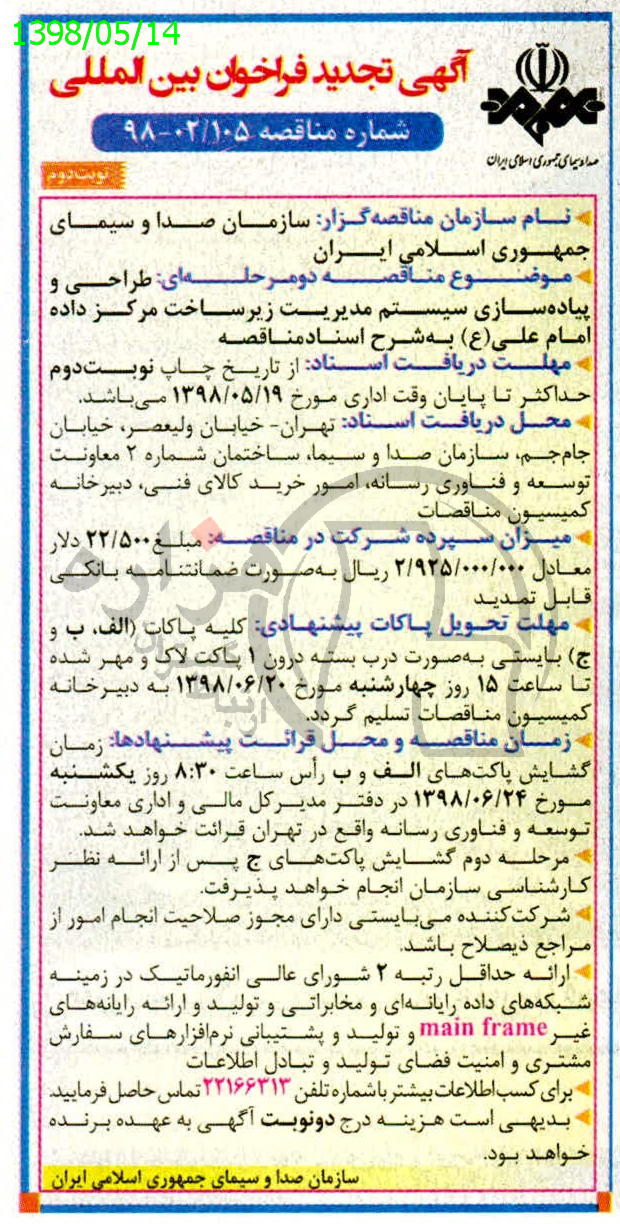 1398/05/14
آگهی تجدید فراخوان بین المللی
شماره مناقصه ۱۰۵/۰۲-۹۸
صدا و سیمای جمهوری اسلامی ایران
نوبت دوم
نام سازمان مناقصه‌گزار: سازمان صدا و سیمای
جمهوری اسلامی ایران
موضوع مناقصه دومرحله‌ای: طراحی و
پیاده‌سازی سیستم مدیریت زیرساخت مرکز داده
امام علی(ع) به‌شرح اسنادمناقصه
مهلت دریافت اسناد: از تاریخ چاپ نوبت‌دوم
حداکثر تا پایان وقت اداری مورخ ۱۳۹۸/۰۵/۱۹ می‌باشد.
محل دریافت اسناد: تهران- خیابان ولیعصر، خیابان
جام‌جم، سازمان صدا و سیما، ساختمان شماره ۲ معاونت
توسعه و فناوری رسانه، امور خرید کالای فنی، دبیرخانه
کمیسیون مناقصات
میزان سپرده شرکت در مناقصه: مبلغ ۲۲/۵۰۰ دلار
معادل ۲/۹۲۵/۰۰۰/۰۰۰ ریال به‌صورت ضمانتنامه بانکی
قابل تمدید
مهلت تحویل پاکات پیشنهادی: کلیه پاکات (الف، ب و
ج) بایستی به‌صورت درب بسته درون ۱ پاکت لاک و مهر شده
تا ساعت ۱۵ روز چهارشنبه مورخ ۱۳۹۸/۰۶/۲۰ به دبیرخانه
کمیسیون مناقصات تسلیم گردد.
زمان مناقصه و محل قرائت پیشنهادها: زمان
گشایش پاکت‌های الف و ب رأس ساعت ۸:۳۰ روز یکشنبه
مورخ ۱۳۹۸/۰۶/۲۴ در دفتر مدیرکل مالی و اداری معاونت
توسعه و فناوری رسانه واقع در تهران قرائت خواهد شد.
مرحله دوم گشایش پاکت‌های ج پس از ارائه نظر
کارشناسی سازمان انجام خواهد پذیرفت.
شرکت‌کننده می‌بایستی دارای مجوز صلاحیت انجام امور از
مراجع ذیصلاح باشد.
ارائه حداقل رتبه ۲ شورای عالی انفورماتیک در زمینه
شبکه‌های داده رایانه‌ای و مخابراتی و تولید و ارائه رایانه‌های
غیر main frame و تولید و پشتیبانی نرم‌افزارهای سفارش
مشتری و امنیت فضای تولید و تبادل اطلاعات
برای کسب اطلاعات بیشتر با شماره تلفن ۲۲۱۶۶۳۱۳ تماس حاصل فرمایید.
بدیهی است هزینه درج دونوبت آگهی به عهده برنده
خواهد بود.
سازمان صدا و سیمای جمهوری اسلامی ایران